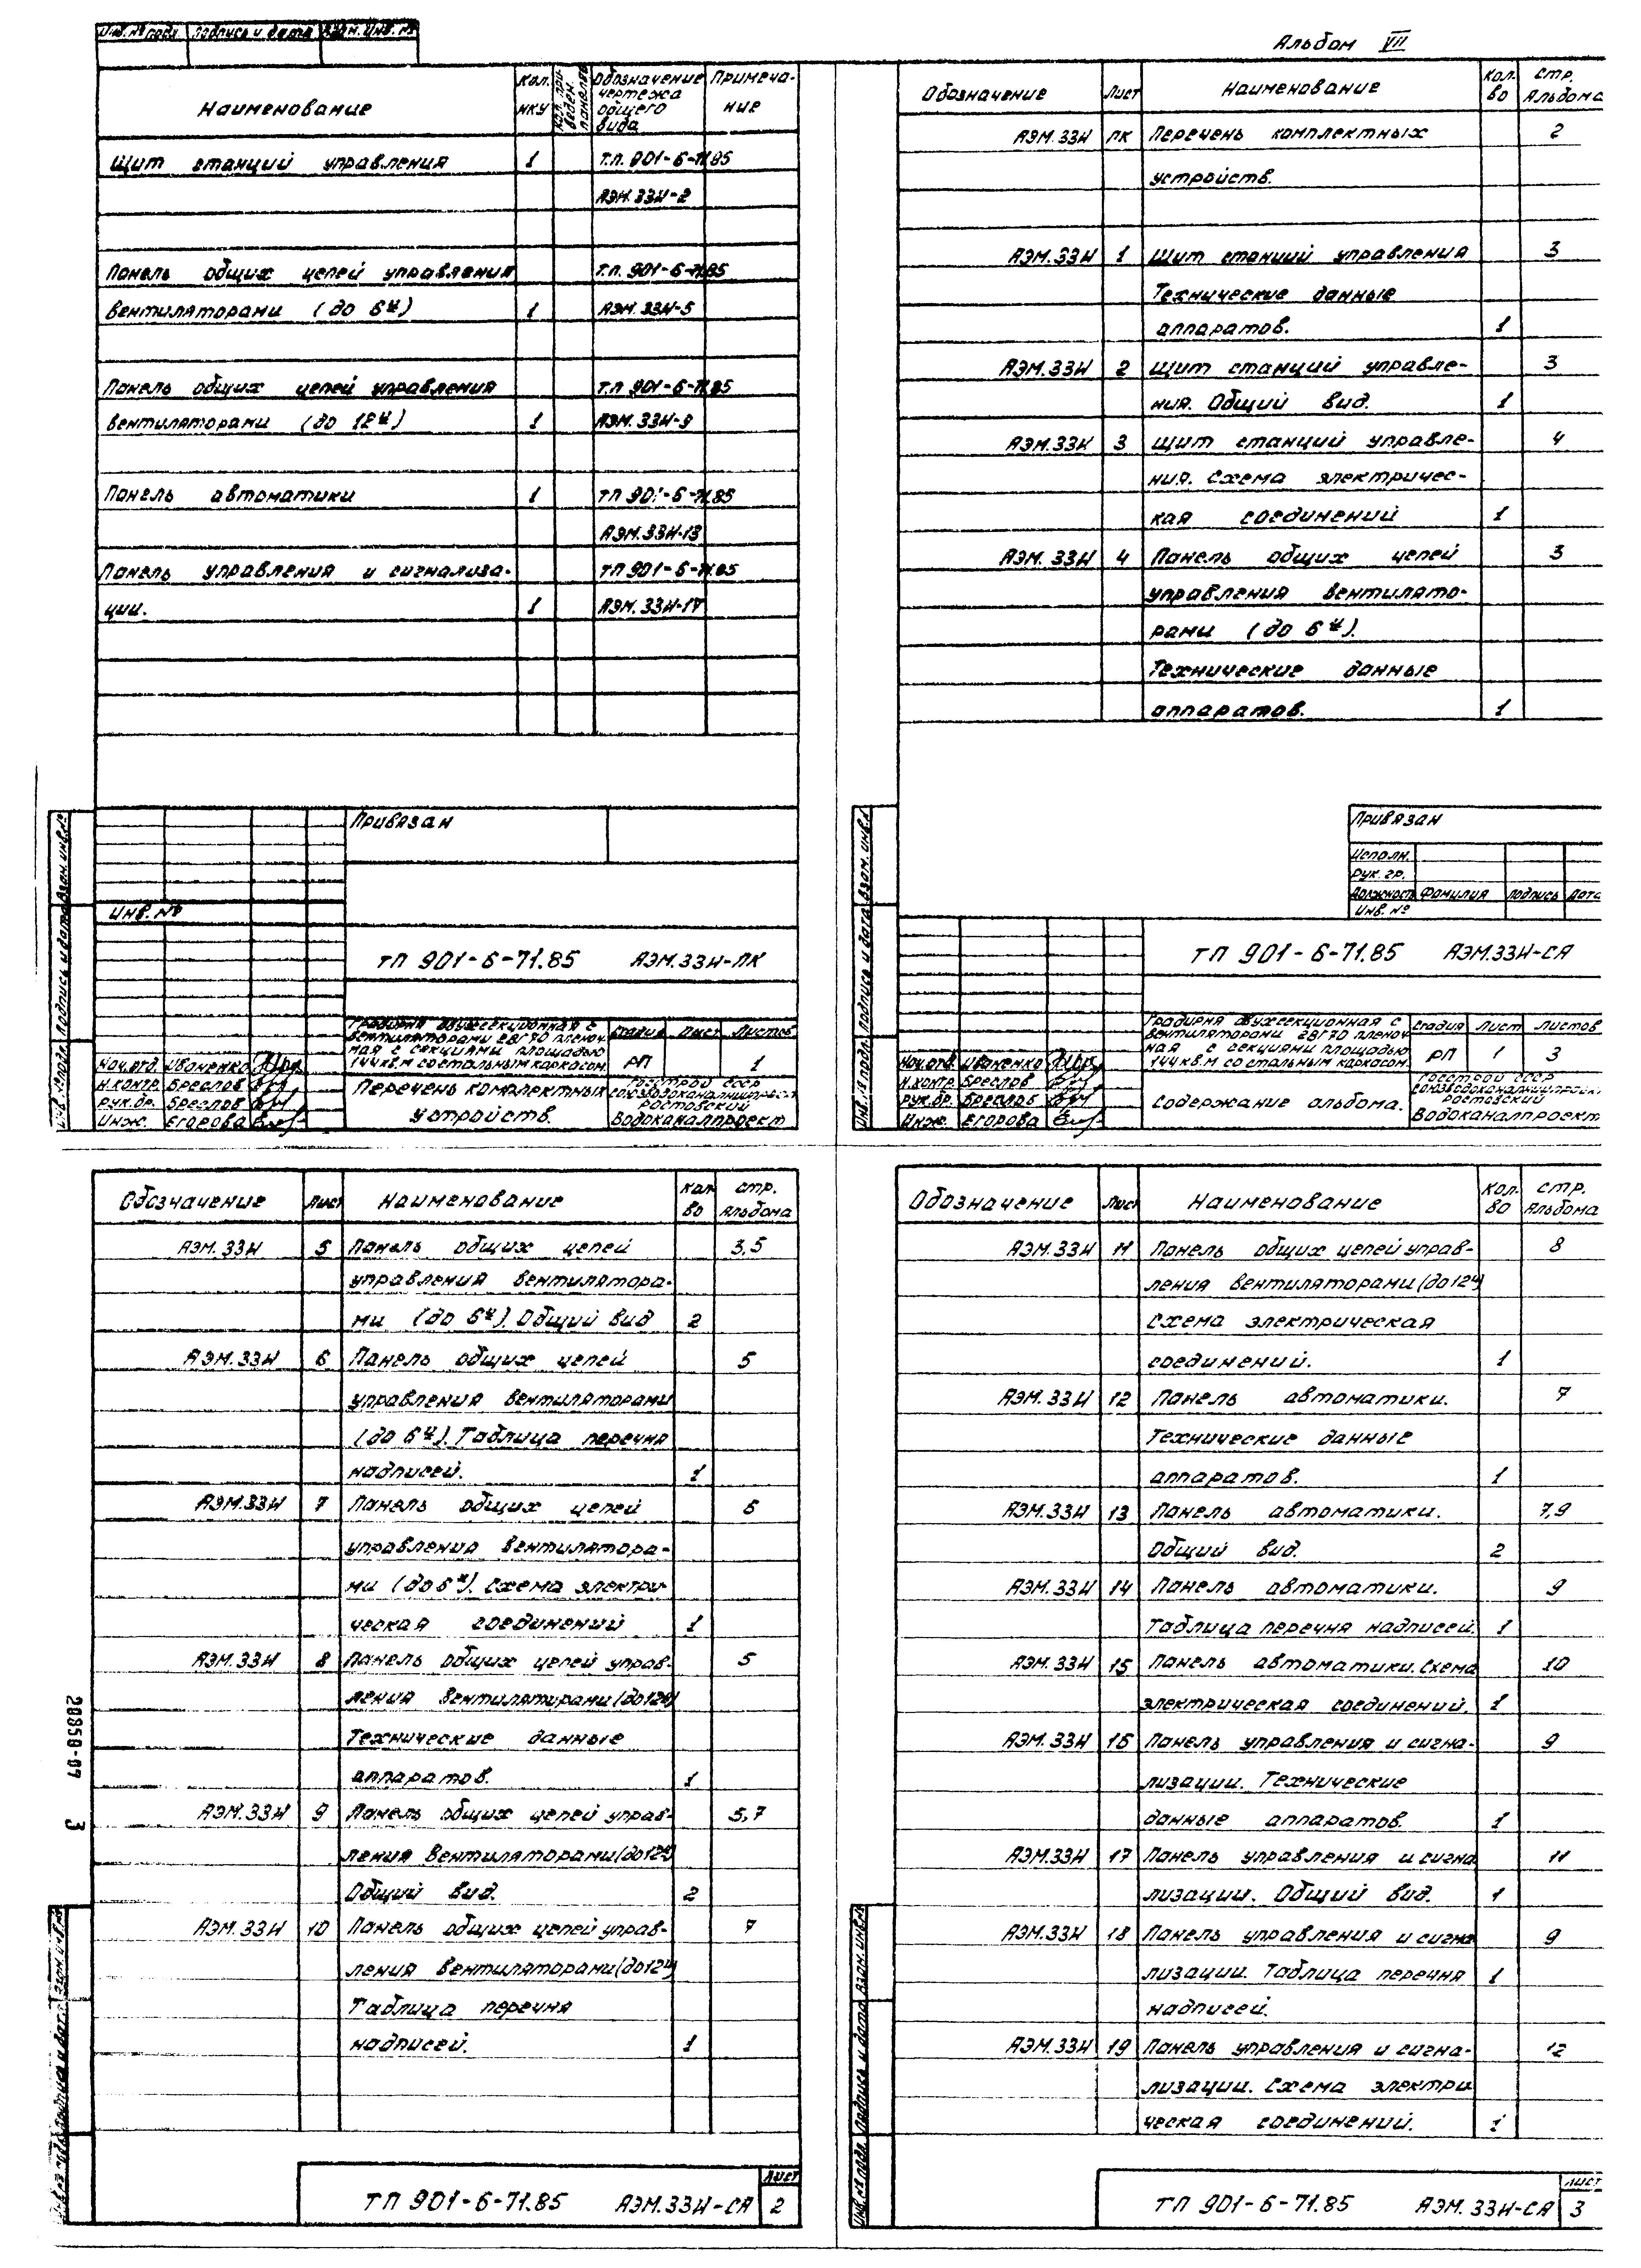 Инв. № подл. Подпись и дата Взам. инв. №
Альбом VII
Наименование Кол. НКУ Кол. приведен. панелей Обозначение чертежа общего вида Примечание
Щит станций управления 1 Т.П. 901-6-71.85
АЭМ.33И-2
Панель общих цепей управления Т.П. 901-6-71.85
вентиляторами (до 6ш) 1 АЭМ.33И-5
Панель общих цепей управления Т.П. 901-6-71.85
вентиляторами (до 12ш) 1 АЭМ.33И-9
Панель автоматики 1 ТП 901-6-71.85
АЭМ.33И-13
Панель управления и сигнализа- ТП 901-6-71.85
ции. 1 АЭМ.33И-17
Привязан
Инв. №
ТП 901-6-71.85 АЭМ.33И-ПК
Градирня двухсекционная с
вентиляторами 2ВГ70 пленоч-
ная с секциями площадью
144 кв.м со стальным каркасом.
Стадия Лист Листов
РП 1
Нач.отд. Иваненко
Н.контр. Бреслов
Рук.бр. Бреслов
Инж. Егорова
Перечень комплектных
устройств.
Госстрой СССР
Союзводоканалниипроект
Ростовский
Водоканалпроект
Взам. инв. №
Подпись и дата
Инв. № подл.
Обозначение Лист Наименование Кол-во стр. Альбома
АЭМ.33И ПК Перечень комплектных 2
устройств.
АЭМ.33И 1 Щит станций управления 3
Технические данные
аппаратов. 1
АЭМ.33И 2 Щит станций управле- 3
ния. Общий вид. 1
АЭМ.33И 3 Щит станций управле- 4
ния. Схема электричес-
кая соединений 1
АЭМ.33И 4 Панель общих цепей 3
управления вентилято-
рами (до 6ш).
Технические данные
аппаратов. 1
Привязан
Исполн.
Рук. гр.
Должность Фамилия Подпись Дата
Инв. №
ТП 901-6-71.85 АЭМ.33И-СА
Градирня двухсекционная с
вентиляторами 2ВГ70 пленоч-
ная с секциями площадью
144 кв.м со стальным каркасом.
Стадия Лист Листов
РП 1 3
Нач.отд. Иваненко
Н.контр. Бреслов
Рук.бр. Бреслов
Инж. Егорова
Содержание альбома.
Госстрой СССР
Союзводоканалниипроект
Ростовский
Водоканалпроект
Взам. инв. №
Подпись и дата
Инв. № подл.
Обозначение Лист Наименование Кол-во стр. Альбома
АЭМ.33И 5 Панель общих цепей 3,5
управления вентилятора-
ми (до 6ш). Общий вид 2
АЭМ.33И 6 Панель общих цепей 5
управления вентиляторами
(до 6ш). Таблица перечня
надписей. 1
АЭМ.33И 7 Панель общих цепей 6
управления вентилятора-
ми (до 6ш). Схема электри-
ческая соединений 1
АЭМ.33И 8 Панель общих цепей управ- 5
ления вентиляторами (до 12ш)
Технические данные
аппаратов. 1
АЭМ.33И 9 Панель общих цепей управ- 5,7
ления вентиляторами (до 12ш)
Общий вид. 2
АЭМ.33И 10 Панель общих цепей управ- 7
ления вентиляторами (до 12ш)
Таблица перечня
надписей. 1
20850-07 3
Взам. инв. №
Подпись и дата
Инв. № подл.
ТП 901-6-71.85 АЭМ.33И-СА Лист 2
Обозначение Лист Наименование Кол-во стр. Альбома
АЭМ.33И 11 Панель общих цепей управ- 8
ления вентиляторами (до 12ш)
Схема электрическая
соединений. 1
АЭМ.33И 12 Панель автоматики. 7
Технические данные
аппаратов. 1
АЭМ.33И 13 Панель автоматики. 7,9
Общий вид. 2
АЭМ.33И 14 Панель автоматики. 9
Таблица перечня надписей. 1
АЭМ.33И 15 Панель автоматики. Схема 10
электрическая соединений. 1
АЭМ.33И 16 Панель управления и сигна- 9
лизации. Технические
данные аппаратов. 1
АЭМ.33И 17 Панель управления и сигна 11
лизации. Общий вид. 1
АЭМ.33И 18 Панель управления и сигна 9
лизации. Таблица перечня 1
надписей.
АЭМ.33И 19 Панель управления и сигна- 12
лизации. Схема электри
ческая соединений. 1
Взам. инв. №
Подпись и дата
Инв. № подл.
ТП 901-6-71.85 АЭМ.33И-СА Лист 3